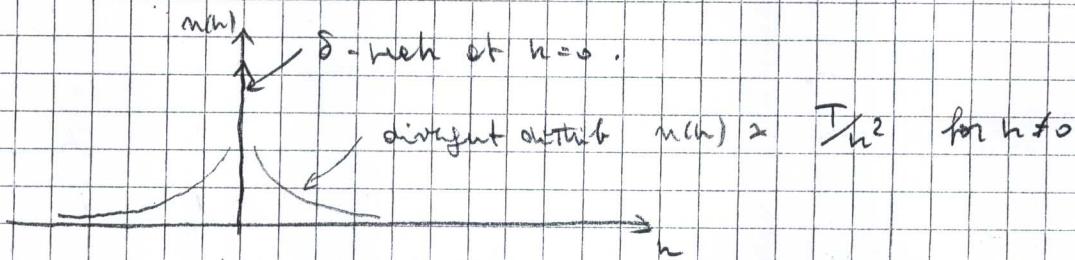 n(k)
δ-peak at k=0.
divergent distrib n(k) ≈ T/k² for k≠0
k